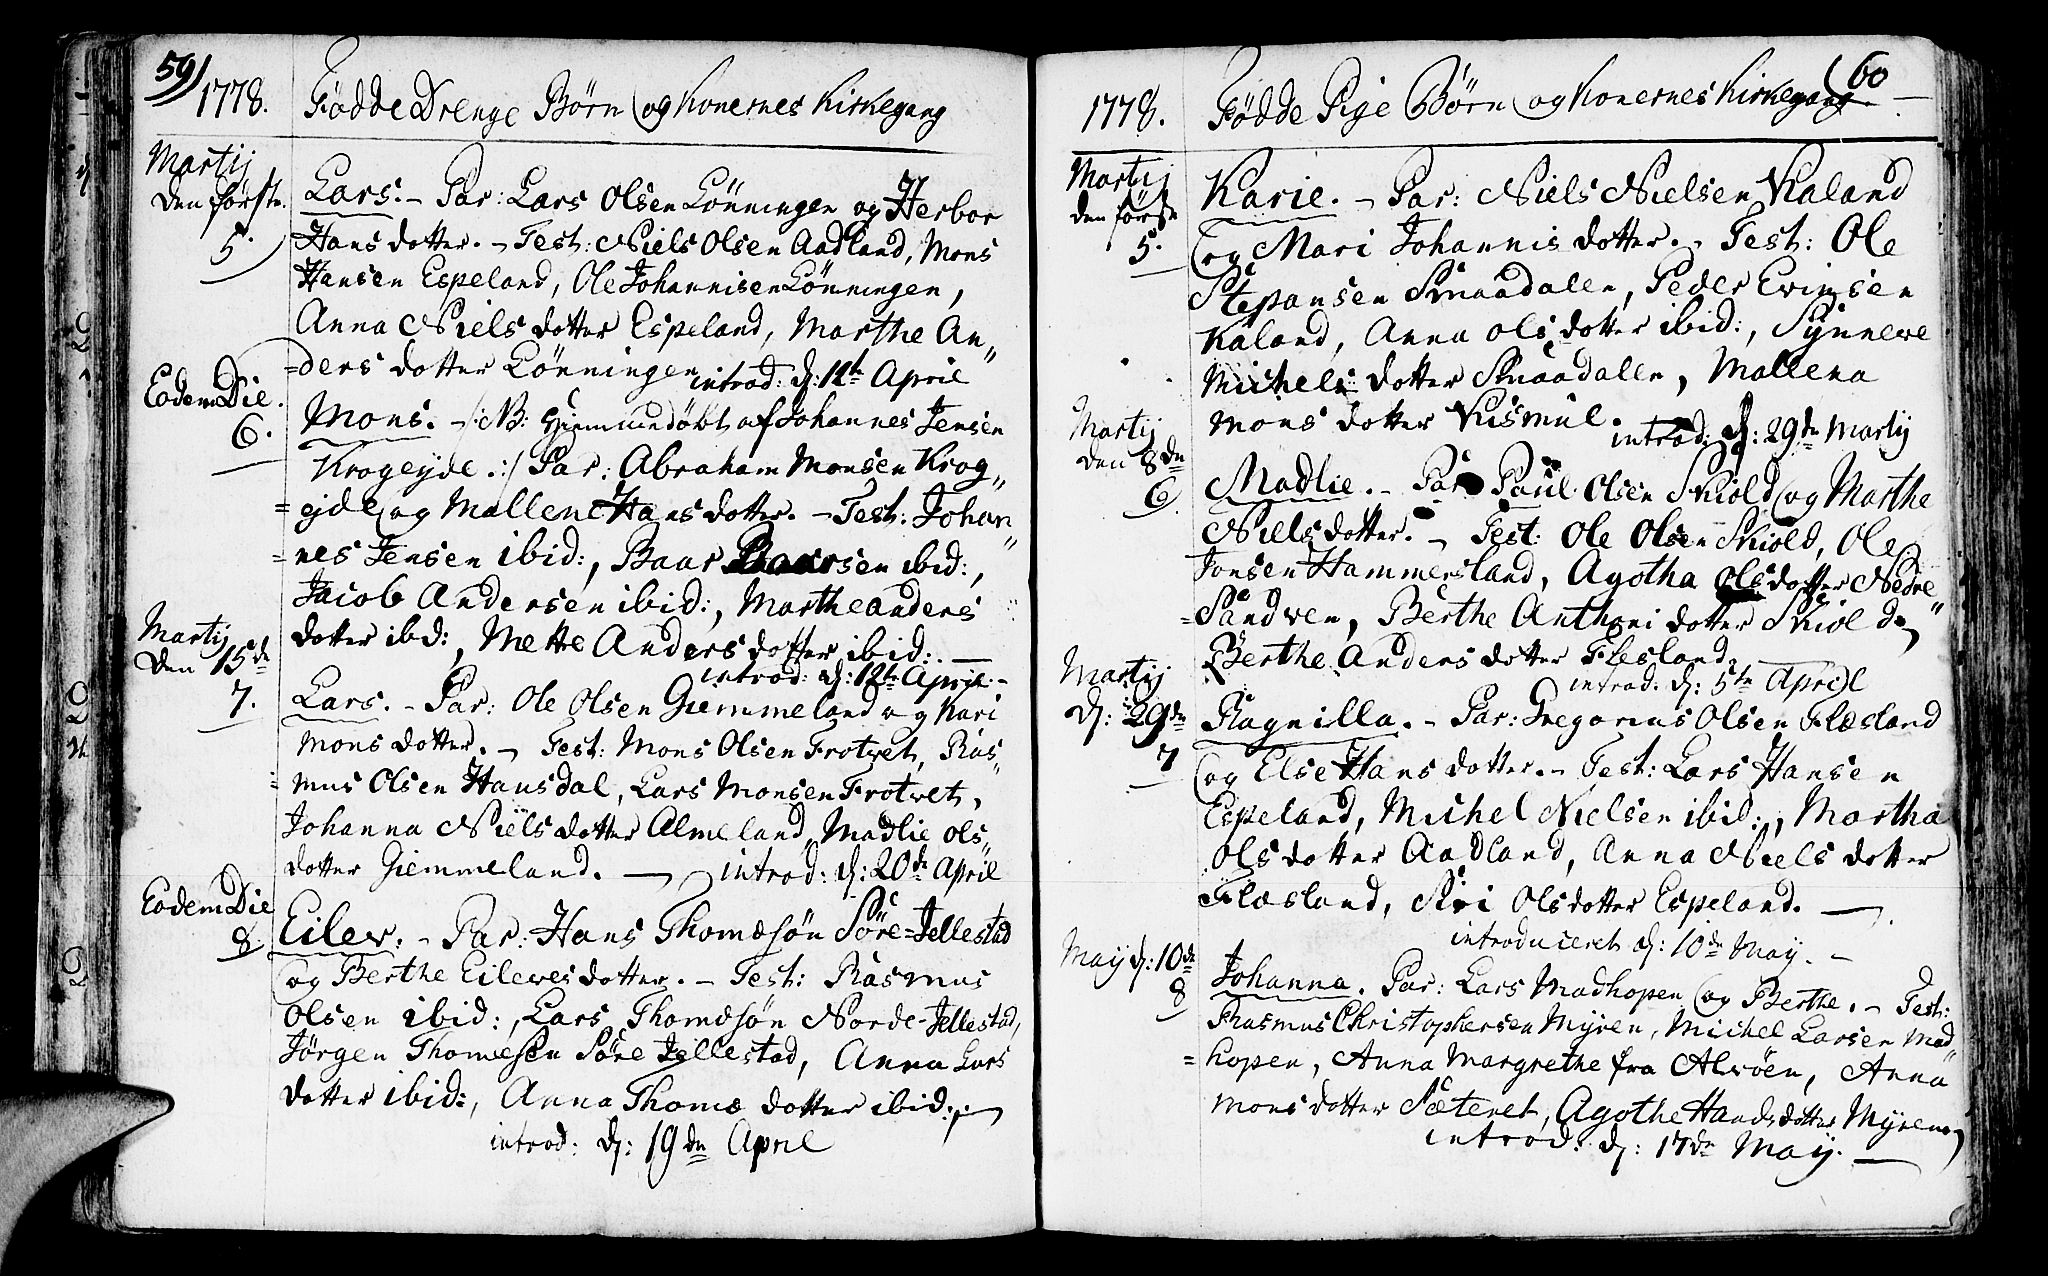 59)
1778. Fødde Drenge Børn og Konernes Kirkegang
Martij
den første.
5.
Lars. - Par: Lars Olsen Lönningen og Herbor
Hans dotter. - Test: Niels Olsen Aadland, Mons
Hansen Espeland, Ole Johannisen Lönningen,
Anna Niels dotter Espeland, Marthe An„
=ders dotter Lönningen introd: d: 12te April
Eodem Die.
6.
Mons. - /: NB: Hjemmedøbt af Johannes Jensen
Krogejde. :/ Par: Abraham Monsen Krog„
=ejde og Mallene Hans dotter. - Test: Johan„
=nes Jensen ibid:, Baar Baarsen ibid:,
Jacob Andersen ibid:, Marthe Anders
dotter ibd:, Mette Anders dotter ibid:. —
introd: d: 12te April -
Martij
den 15de
7.
Lars. - Par: Ole Olsen Giemmeland og Kari
Mons dotter. - Test: Mons Olsen Frotvet, Ras„
=mus Olsen Hansdal, Lars Monsen Frotvet,
Johanna Niels dotter Almeland, Madlie Ols„
dotter Giemmeland. — introd: d: 20de April
Eodem Die
8
Eilev. - Par: Hans Thomæsøn Søre=Jellestad
og Berthe Eileves dotter. - Test: Rasmus
Olsen ibid:, Lars Thomæsøn Nordre-Jellestad,
Jørgen Thomesen Søre Jellestad, Anna Lars
dotter ibid:, Anna Thomæ dotter ibid:. —
introd: d: 19de April
(60
1778. Fødde Pige Børn og Konernes Kirkegang. —
Martij
den første
5.
Karie. - Par: Niels Nielsen Kaland
og Mari Johannis dotter. - Test: Ole
Stepansen Smaadalen, Peder Evinsen
Kaland, Anna Ols dotter ibid:, Synneve
Michels dotter Smaadalen, Mallena
Mons dotter Kismul.
introd: d: 29de Martij
Martij
den 8de
6
Madlie. - Par: Paul Olsen Skiold og Marthe
Niels dotter. - Test: Ole Olsen Skiold, Ole
Jonsen Hammersland, Agotha Ols dotter Nedre„
=Sandven, Berthe Anthoni dotter Skiold,
Berthe Anders dotter Flesland.
introd. d: 5te April
Martij
d: 29de
7
Ragnilla. - Par: Gregorius Olsen Flæsland
og Else Hans dotter. - Test: Lars Hansen
Espeland, Michel Nielsen ibid:, Martha
Ols dotter Aadland, Anna Niels dotter
Flæsland, Siri Olsdotter Espeland. —
introduceret d: 10de May. -
May d: 10de
8
Johanna. Par: Lars Madhopen og Berthe. - Test:
Rasmus Christophersen Myren, Michel Larsen Mad„
=hopen, Anna Margrethe fra Alvöen, Anna
Mons dotter Sæteret, Agothe Hans dotter Myren.
introd: d: 17de May. —